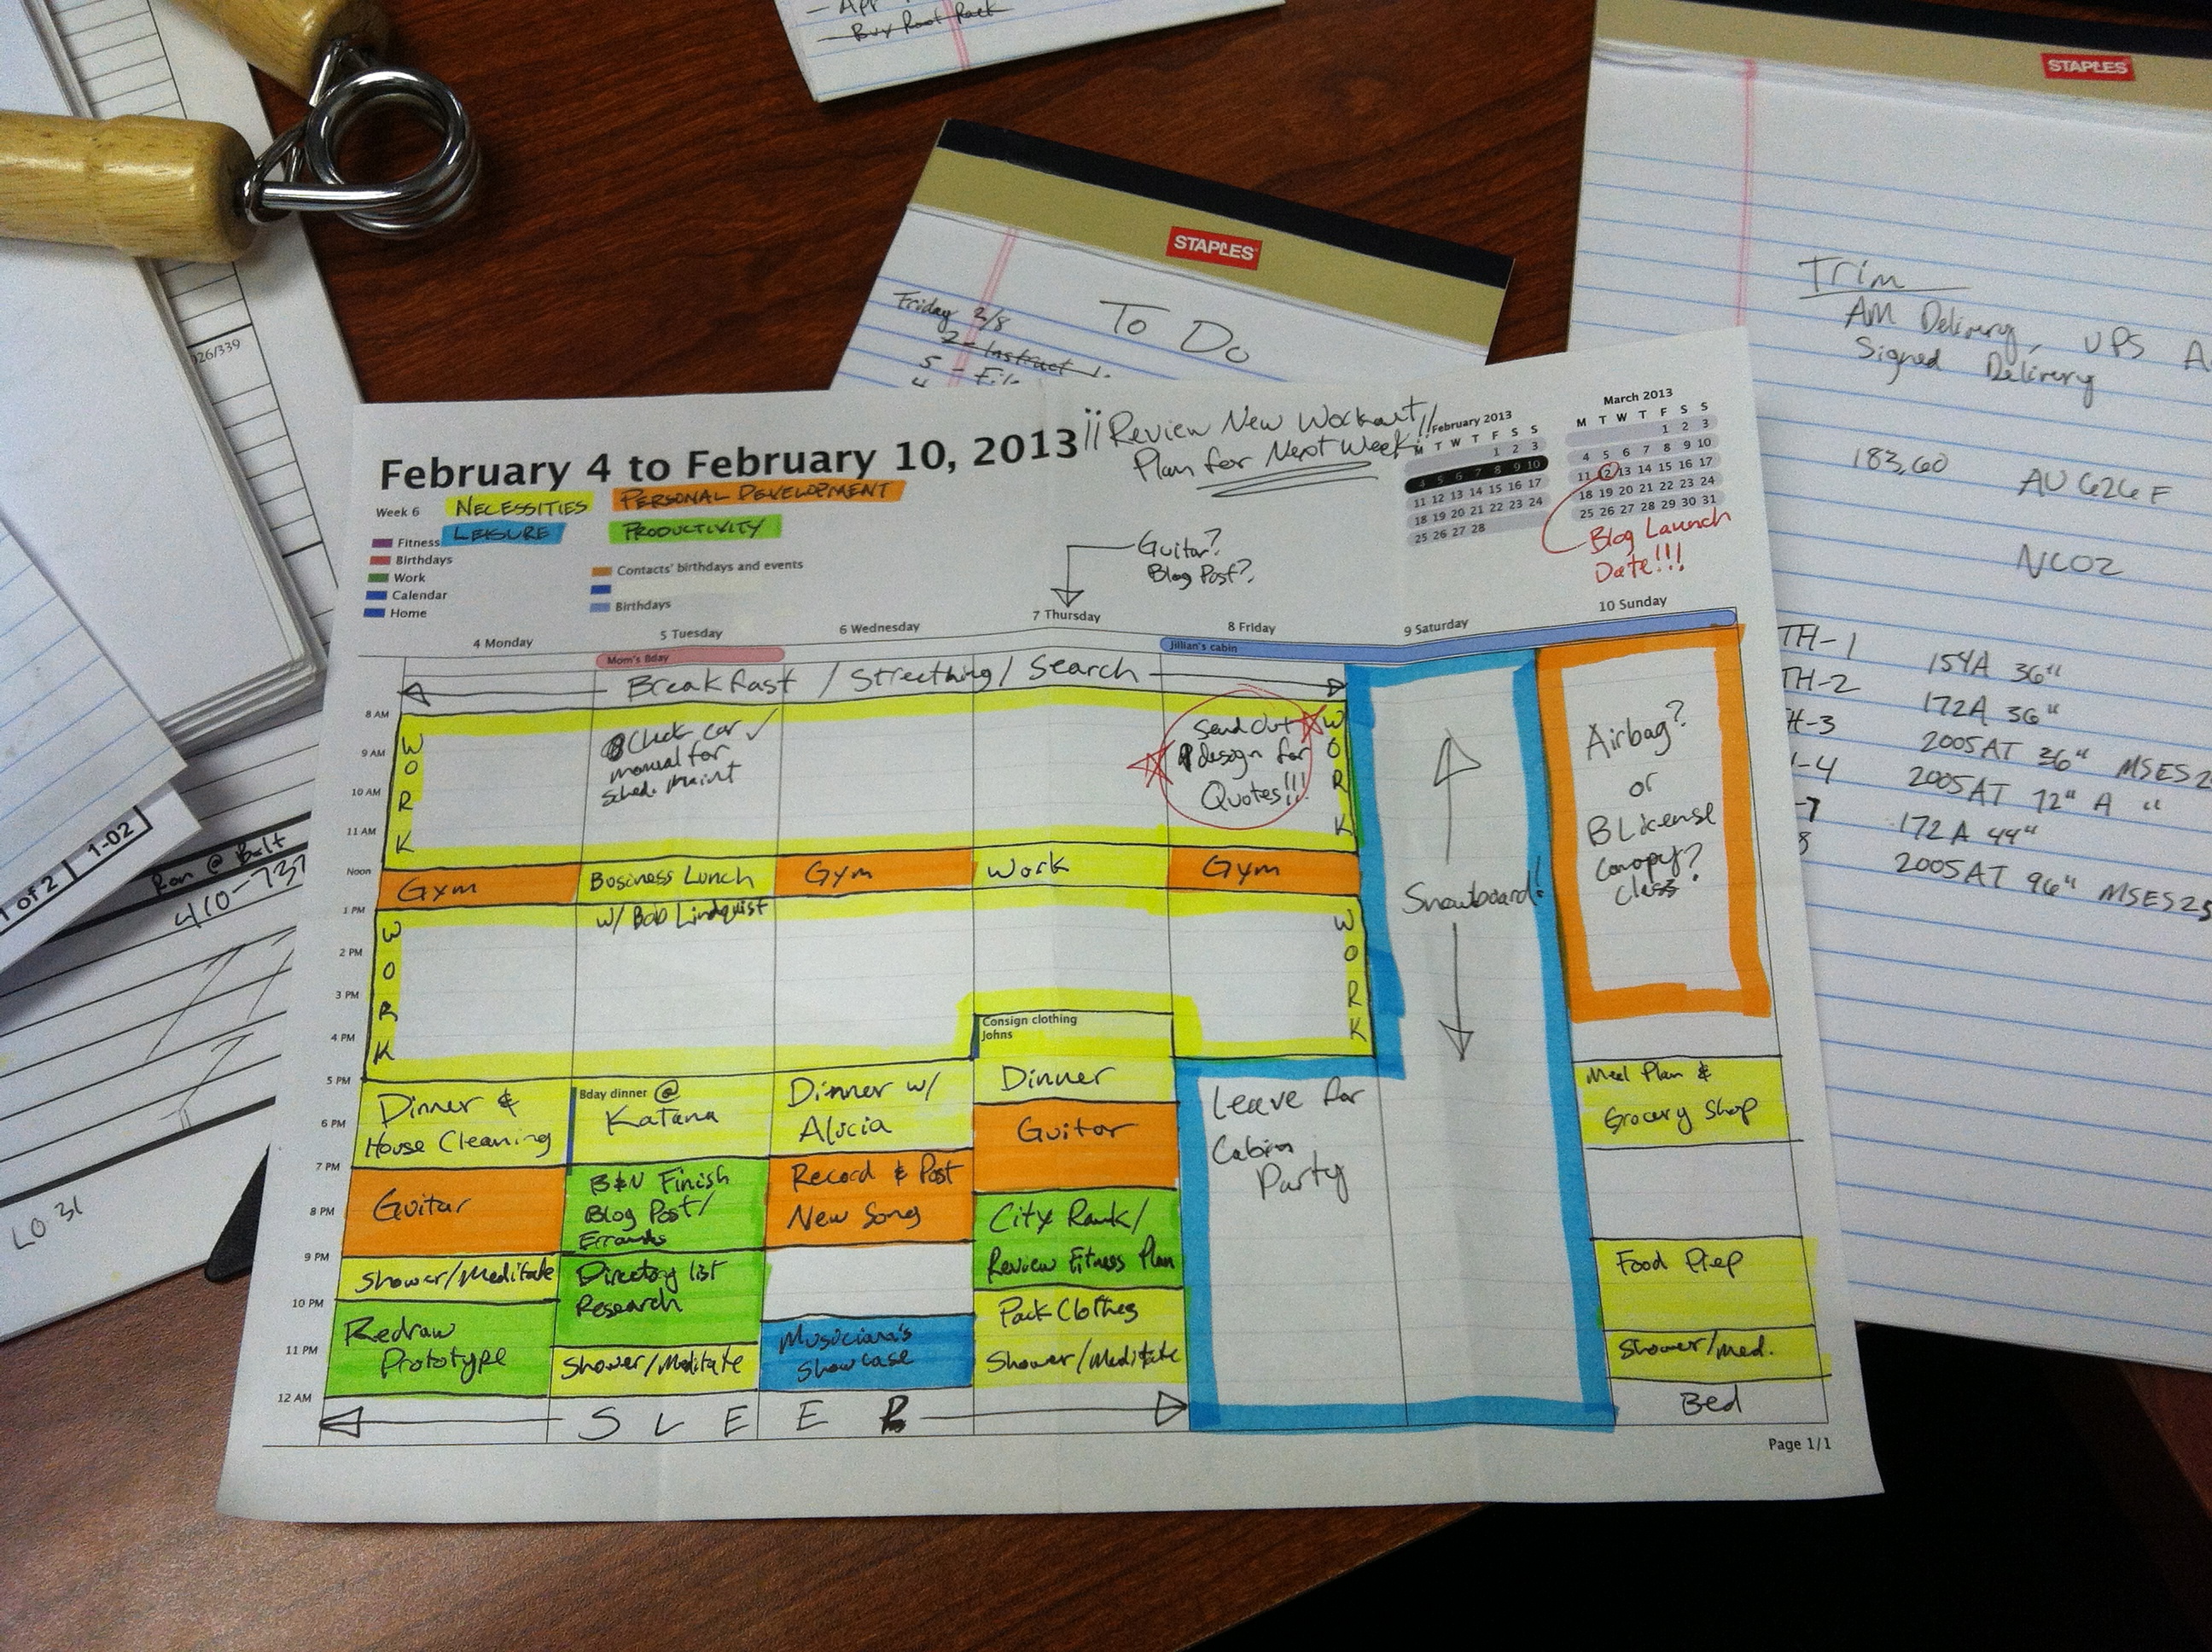 Buy Roof Rack
STAPLES
STAPLES
To Do
Friday 2/8
Trim
AM Delivery, UPS
Signed Delivery
183.60
AU626F
NCO2
TH-1 154A 36"
TH-2 172A 36"
H-3 2005AT 36" MSES2
-4 2005AT 72" A "
-7 172A 44"
8 2005AT 96" MSES25
026/339
1 of 2 1-02
Ron @ Belt
410-737
LO 31
February 4 to February 10, 2013
¡¡Review New Workout!!
Plan for Next Week
Week 6
NECESSITIES
PERSONAL DEVELOPMENT
LEISURE
PRODUCTIVITY
Fitness
Birthdays
Work
Calendar
Home
Contacts' birthdays and events
Birthdays
Guitar?
Blog Post?
February 2013
M T W T F S S
1 2 3
4 5 6 7 8 9 10
11 12 13 14 15 16 17
18 19 20 21 22 23 24
25 26 27 28
March 2013
M T W T F S S
1 2 3
4 5 6 7 8 9 10
11 12 13 14 15 16 17
18 19 20 21 22 23 24
25 26 27 28 29 30 31
Blog Launch
Date!!!
4 Monday
5 Tuesday
6 Wednesday
7 Thursday
8 Friday
9 Saturday
10 Sunday
Mom's Bday
Jillian's cabin
Breakfast / Streething / Search
8 AM
9 AM
10 AM
11 AM
Noon
1 PM
2 PM
3 PM
4 PM
5 PM
6 PM
7 PM
8 PM
9 PM
10 PM
11 PM
12 AM
WORK
Check car ✓
manual for
sched. maint
Send Out
design for
Quotes!!!
WORK
Gym
Business Lunch
w/ Bob Lindquist
Gym
Work
Gym
WORK
WORK
Consign clothing
Johns
Dinner &
House Cleaning
Guitar
Shower/Meditate
Redraw
Prototype
Bday dinner @
Katana
B&N Finish
Blog Post/
Errands
Directory list
Research
Shower/Meditate
Dinner w/
Alicia
Record & Post
New Song
Musician's
Showcase
Dinner
Guitar
City Rank/
Review Fitness Plan
Pack Clothes
Shower/Meditate
Leave for
Cabin
Party
Snowboard!
Airbag?
or
B License
canopy?
class?
Meal Plan &
Grocery Shop
Food Prep
Shower/Med.
Bed
SLEEP
Page 1/1